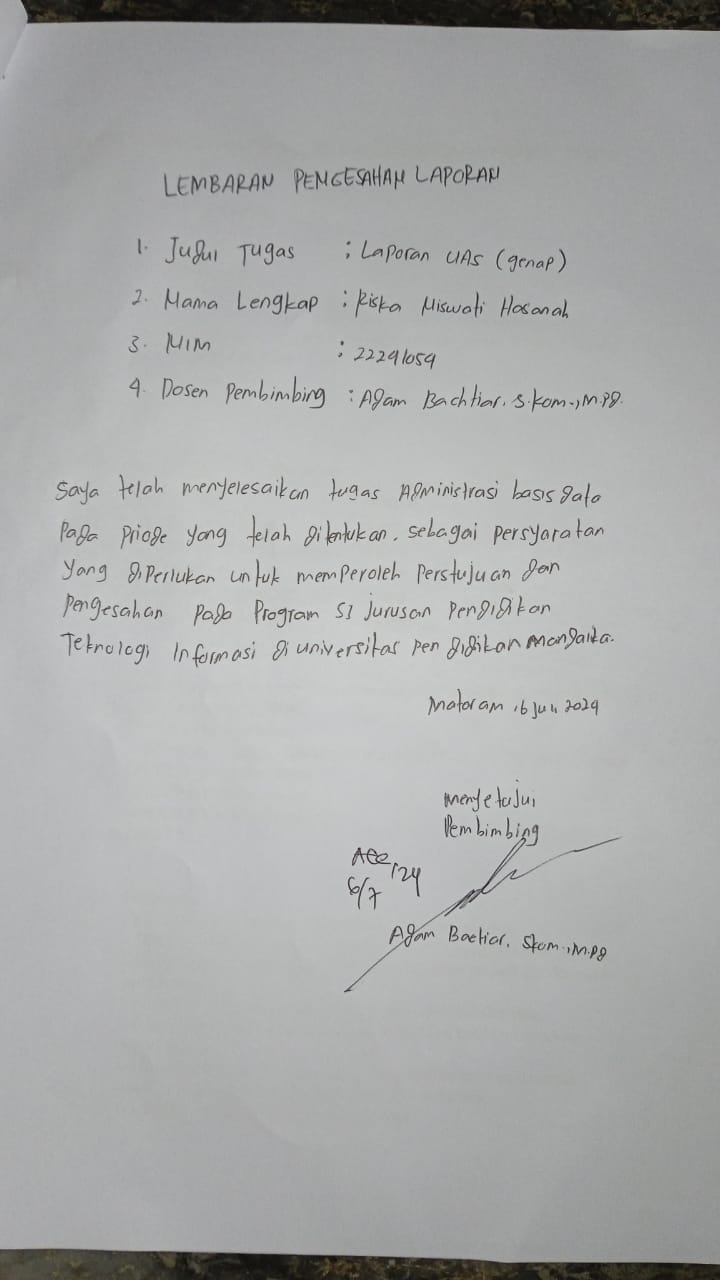 LEMBARAN PENGESAHAN LAPORAN
1. Judul Tugas : Laporan UAS (genap)
2. Nama Lengkap : Riska Miswati Hasanah
3. NIM : 22241059
4. Dosen Pembimbing : Adam Bachtiar. S.kom., M.Pd.
Saya telah menyelesaikan tugas Administrasi basis data
Pada Priode yang telah ditentukan. sebagai persyaratan
yang diperlukan untuk memperoleh Perstujuan dan
Pengesahan Pada Program S1 Jurusan Pendidikan
Teknologi Informasi di universitas pendidikan mandalika.
Mataram, 6 Juli 2024
menyetujui
Pembimbing
Acc
6/7 /24
Adam Bactiar. Skom., M.Pd